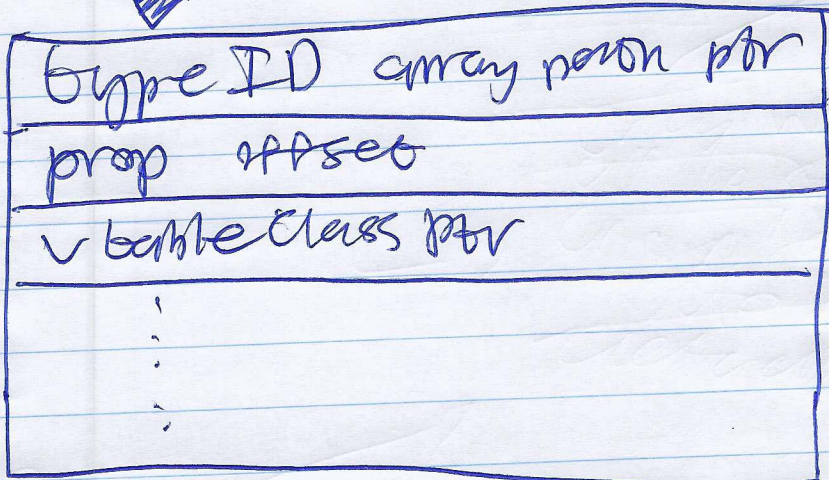 type ID array ptr
prop offset
vtable Class ptr